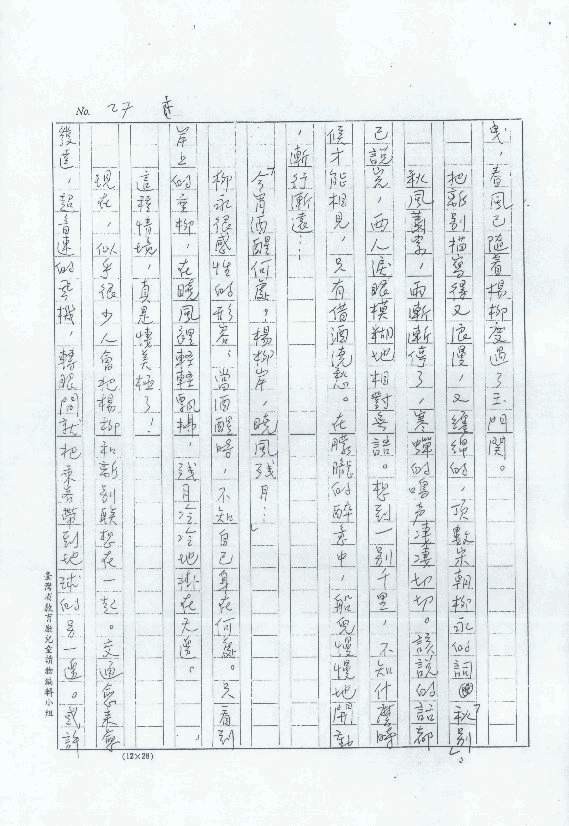 No. 27
曳，春風已隨着楊柳度過了玉門關。
把離别描寫得又浪漫，又纏綿的，頂數宋朝柳永的詞「秋别」，
秋風蕭索，雨漸漸停了，寒蟬的鳴声凄凄切切。該說的話都
已說完，兩人淚眼模糊地相對無語。想到一别千里，不知什麼時
候才能相見，只有借酒澆愁。在朦朧的醉意中，船兒慢慢地開動
，漸行漸遠……
「今宵酒醒何處。楊柳岸，曉風残月…」
柳永很感性的形容：當酒醒時，不知自己身在何處。只看到
岸上的垂柳，在曉風裡輕輕飄拂，残月冷冷地掛在天邊。
這種情境，真是悽美極了！
現在，似乎很少人會把楊柳和離别联想在一起。交通愈來愈
發達，超音速的飛機，轉眼間就把乘客帶到地球的另一邊。或許
臺灣省教育廳兒童讀物編輯小組
(12×28)